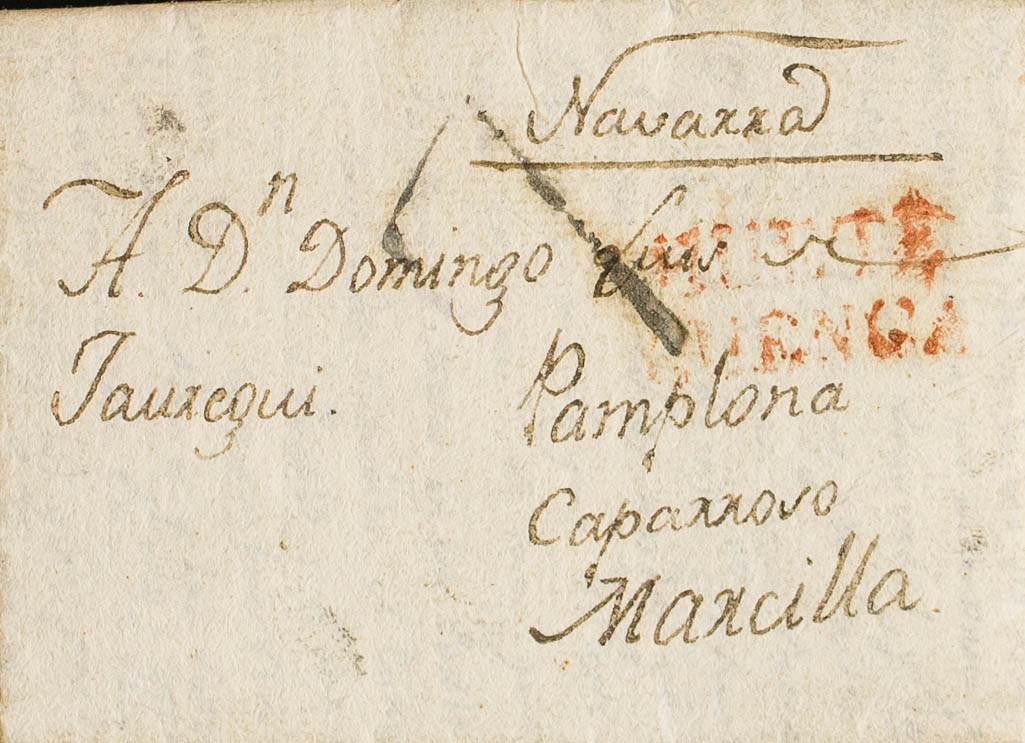 Navarra
A. Dn. Domingo Luis
Jauregui.
Pamplona
Caparroso
Marcilla.